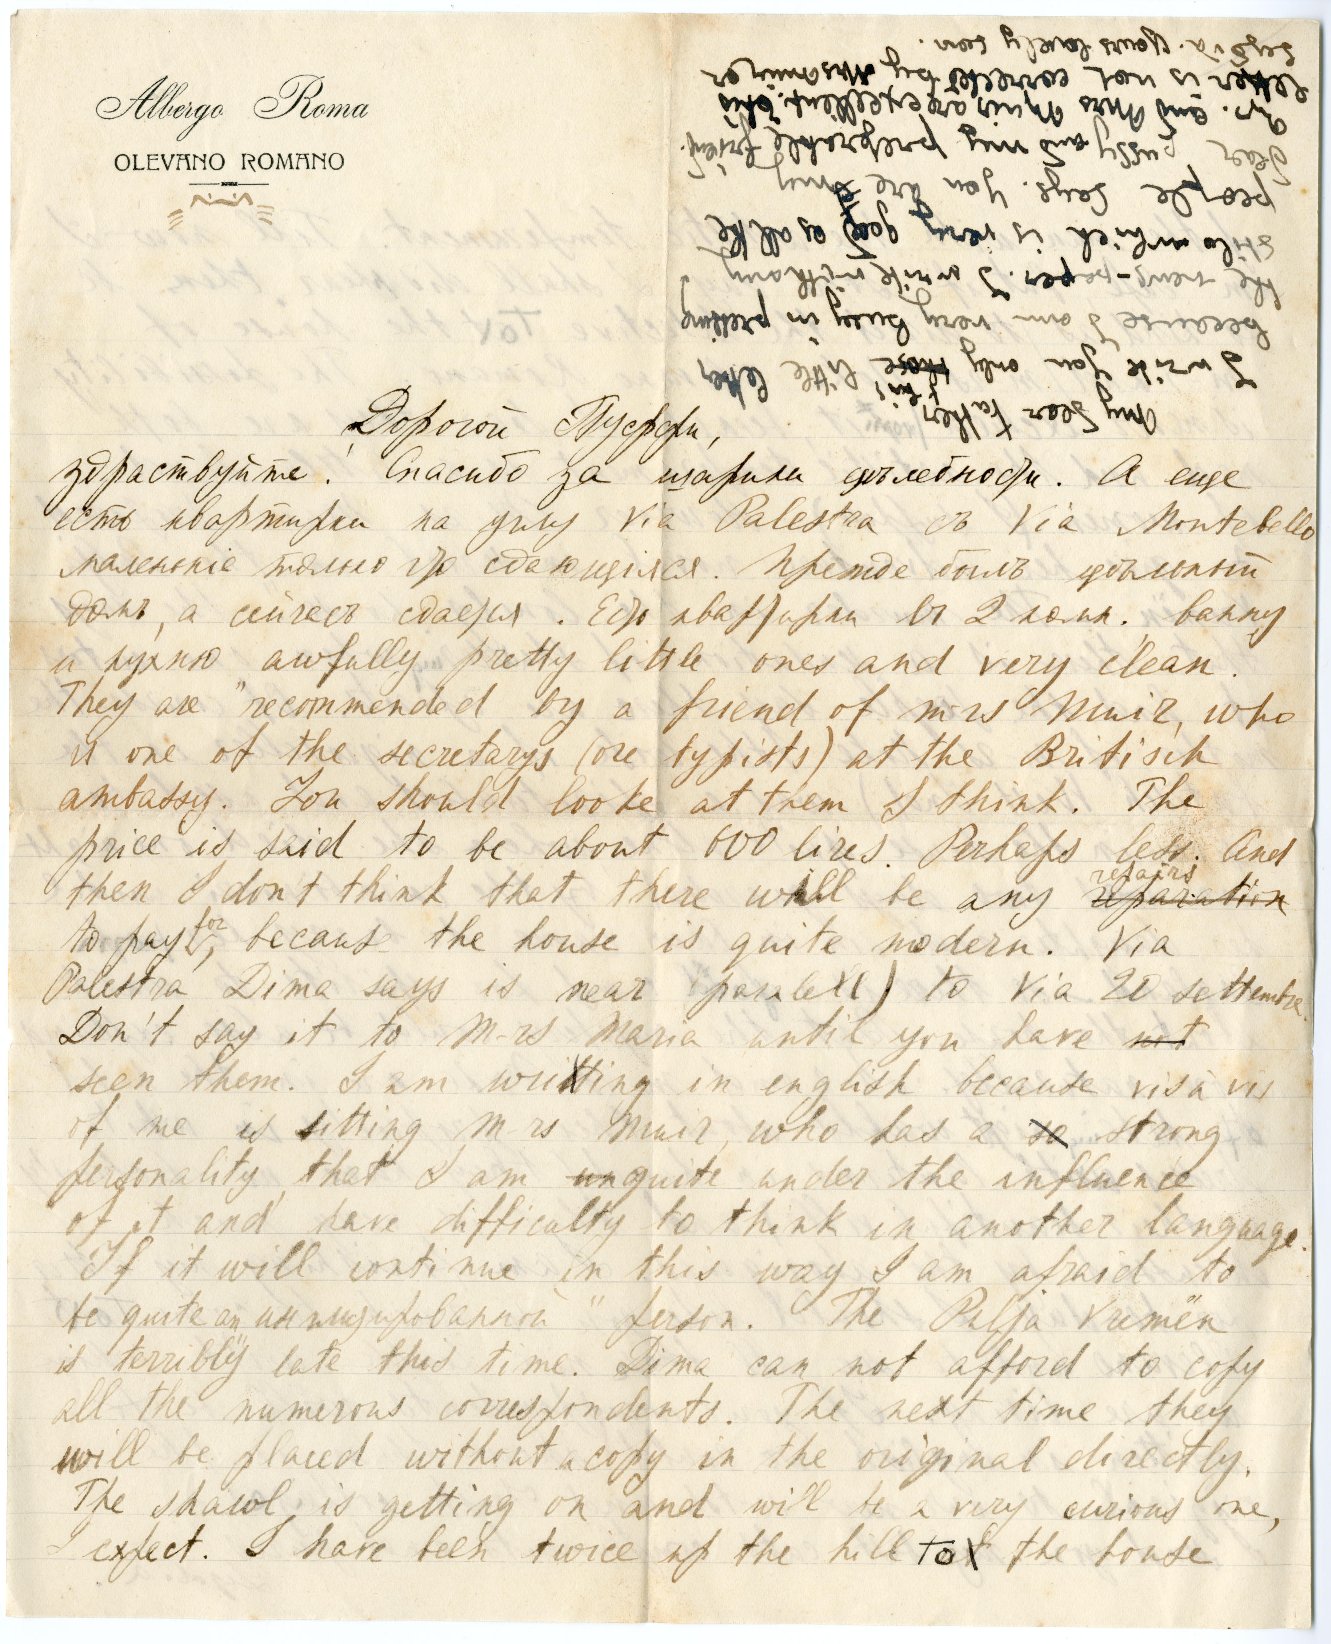 Albergo Roma
OLEVANO ROMANO
My dear father
I write you only those this little letter
because I am very busy in
the news-paper. I write with any
stilo which is very good as all the
people says. You are my
dear pussy and my preferable friend.
Mr. and Mrs Muir are excellent. This
letter is not corrected by Mrs Muir
yours lovely son.
Дорогой Пусси,
здраствуйте! Спасибо за
А еще
есть квартирки на углу Via Palestra съ Via Montebello
маленькіе только что сдающіяся. Прежде былъ цѣльный
домъ, а сейчасъ сдается. Есть квартирки въ 2 комн. ванну
и кухню awfully pretty little ones and very clean.
They are "recommended by a friend of mrs Muir, who
is one of the secretarys (ore typists) at the Britisch
ambassy. You should looke at them I think. The
price is said to be about 600 lires. Perhaps less. And
then I dont think that there will be any reparation repairs
to pay for, becaus the house is quite modern. Via
Palestra Dima says is near (paralell) to Via 20 settembre.
Don't say it to M-rs Maria until you have not
seen them. I am writting in english because vis à vis
of me is sitting M-rs Muir, who has a so strong
personality, that I am un quite under the influence
of it and have difficulty to think in another language.
If it will continue in this way I am afraid to
be quite an person. The Pulja Vremën
is terribly late this time. Dima can not afford to copy
all the numerous correspondents. The next time they
will be placed without a copy in the original directly.
The shawl is getting on and will be a very curious one,
I expect. I have been twice up the hill to the house